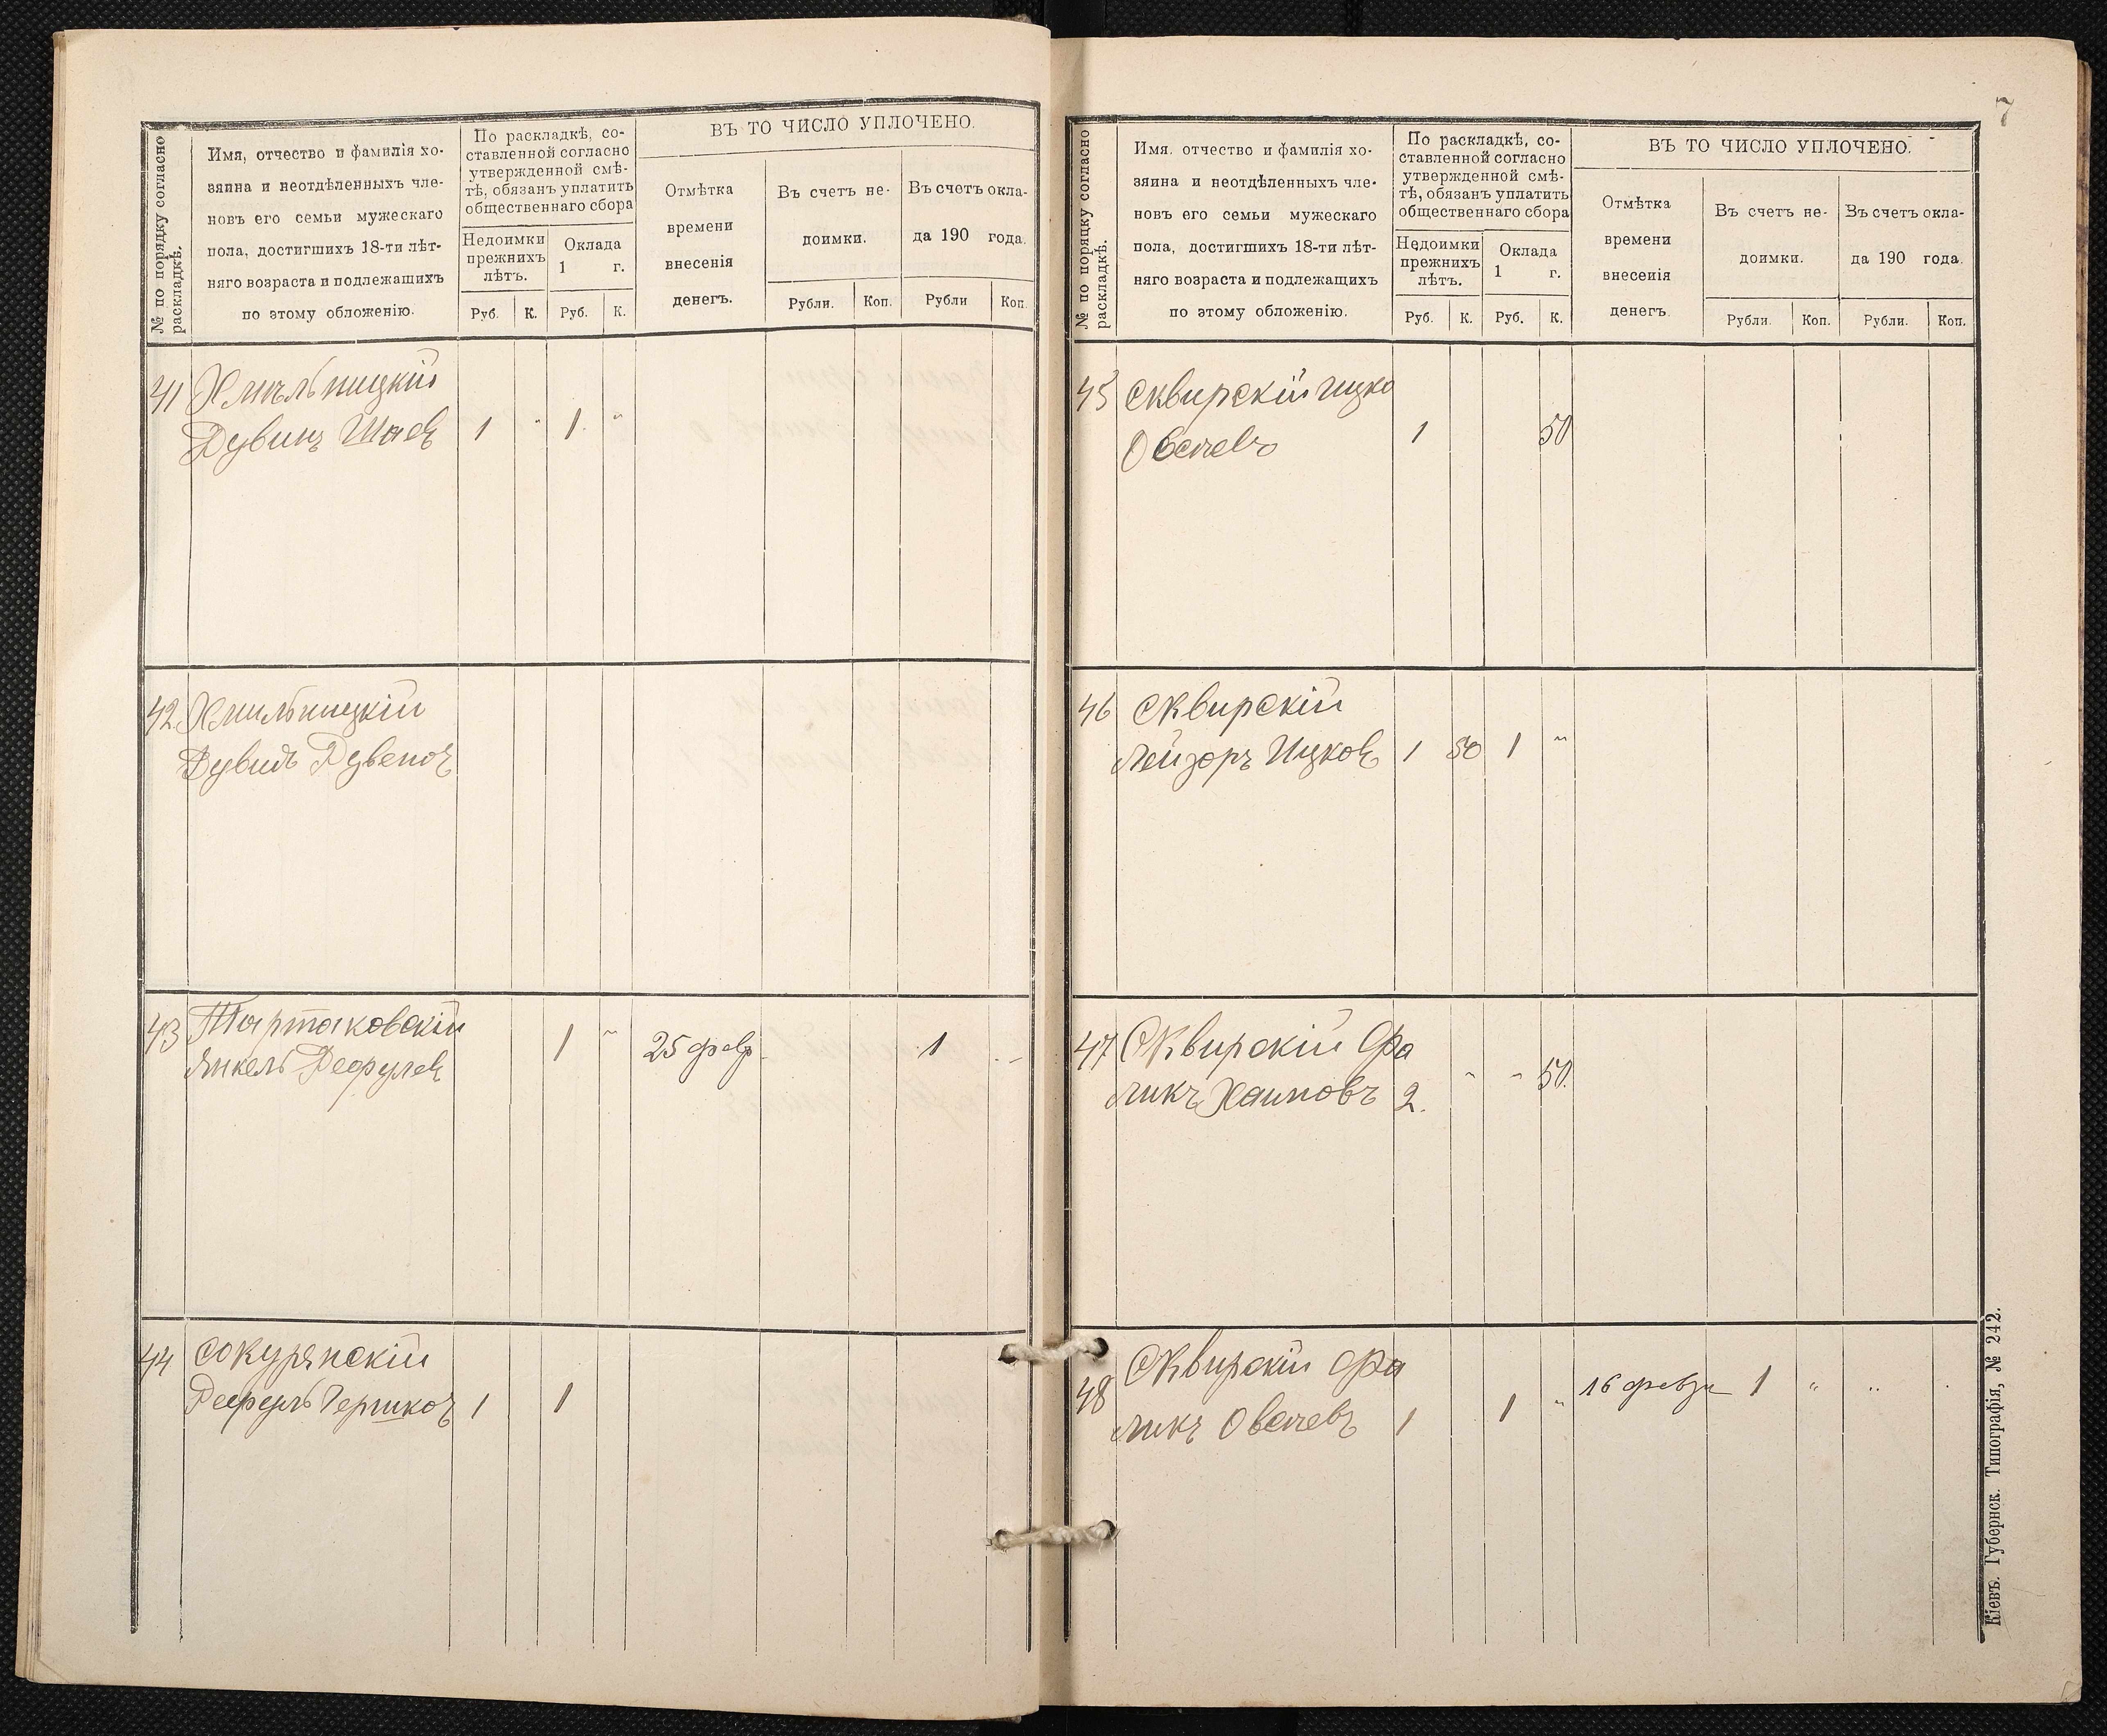 № по порядку согласно
раскладкѣ.
Имя, отчество и фамилія хо-
зяина и неотдѣленныхъ чле-
новъ его семьи мужескаго
пола, достигшихъ 18-ти лѣт-
няго возраста и подлежащихъ
по этому обложенію.
По раскладкѣ, со-
ставленной согласно
утвержденной смѣ-
тѣ, обязанъ уплатить
общественнаго сбора
Недоимки
прежнихъ
лѣтъ.
Оклада
1 г.
Руб. К. Руб. К.
ВЪ ТО ЧИСЛО УПЛОЧЕНО.
Отмѣтка
времени
внесенія
денегъ.
Въ счетъ не-
доимки.
Въ счетъ окла-
да 190 года.
Рубли. Коп. Рубли Коп.
41 Хмѣльницкій
Дувинъ Шаев 1 " 1 "
42 Хмильницкій
Дувидъ
43 Тартаковскій
Янкель 1 " 25 февр 1 -
44 Сокурянскій
1 1
7
№ по порядку согласно
раскладкѣ.
Имя. отчество и фамилія хо-
зяина и неотдѣленныхъ чле-
новъ его семьи мужескаго
пола, достигшихъ 18-ти лѣт-
няго возраста и подлежащихъ
по этому обложенію.
По раскладкѣ, со-
ставленной согласно
утвержденной смѣ-
тѣ, обязанъ уплатить
общественнаго сбора
Недоимки
прежнихъ
лѣтъ.
Оклада
1 г.
Руб. К. Руб. К.
ВЪ ТО ЧИСЛО УПЛОЧЕНО.
Отмѣтка
времени
внесенія
денегъ.
Въ счетъ не-
доимки.
Въ счетъ окла-
да 190 года.
Рубли. Коп. Рубли. Коп.
45 Сквирскій Ицко
Овсеевъ 1 50
46 Сквирскій
Лейзоръ Ицков 1 50 1 "
47 Сквирскій Фа
ликъ Хаимовъ 2. " " 50.
48 Сквирскій Фа
ликъ Овсеевъ 1 1 " 16 1 " "
Кіевъ. Губернск. Типографія, № 242.